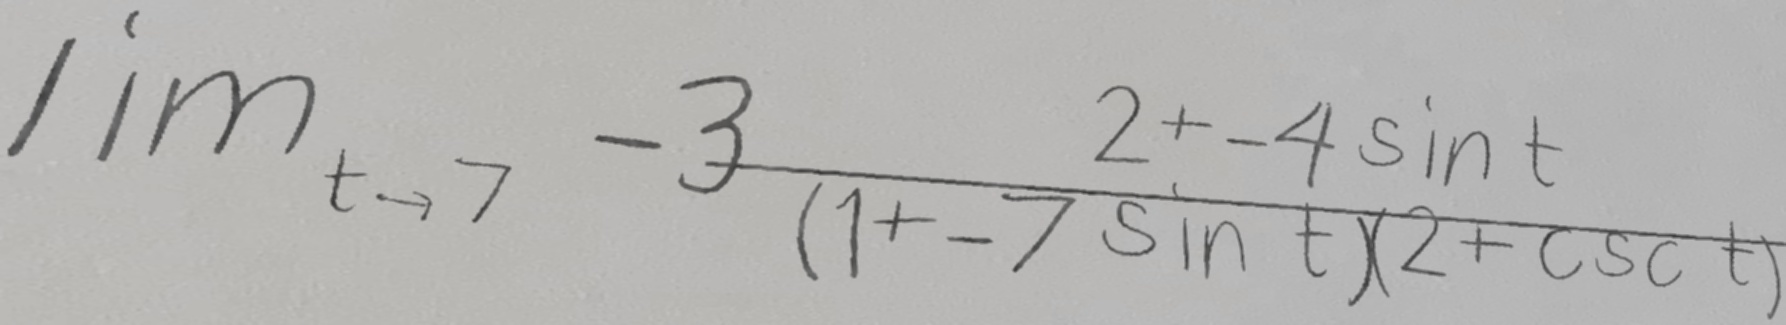 lim t→7 -3 (2+-4 sin t)/((1+-7 sin t)(2+csc t))